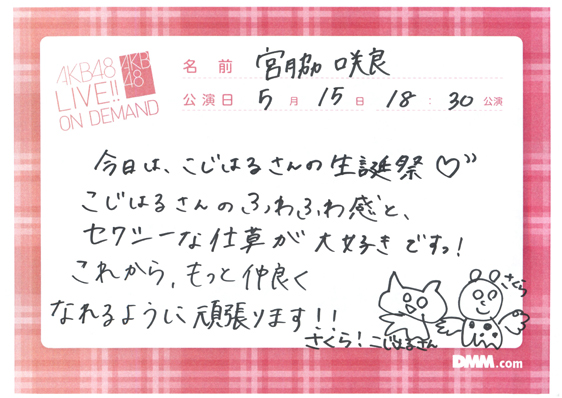 AKB48
LIVE!!
ON DEMAND
AKB
48
名前 宮脇 咲良
公演日 5月 15日 18:30公演
今日は、こじはるさんの生誕祭♡〃
こじはるさんのふわふわ感と、
セクシーな仕草が大好きですっ!
これから、もっと仲良く
なれるように頑張ります!!
さくら
さくら! こじはるさん
DMM.com